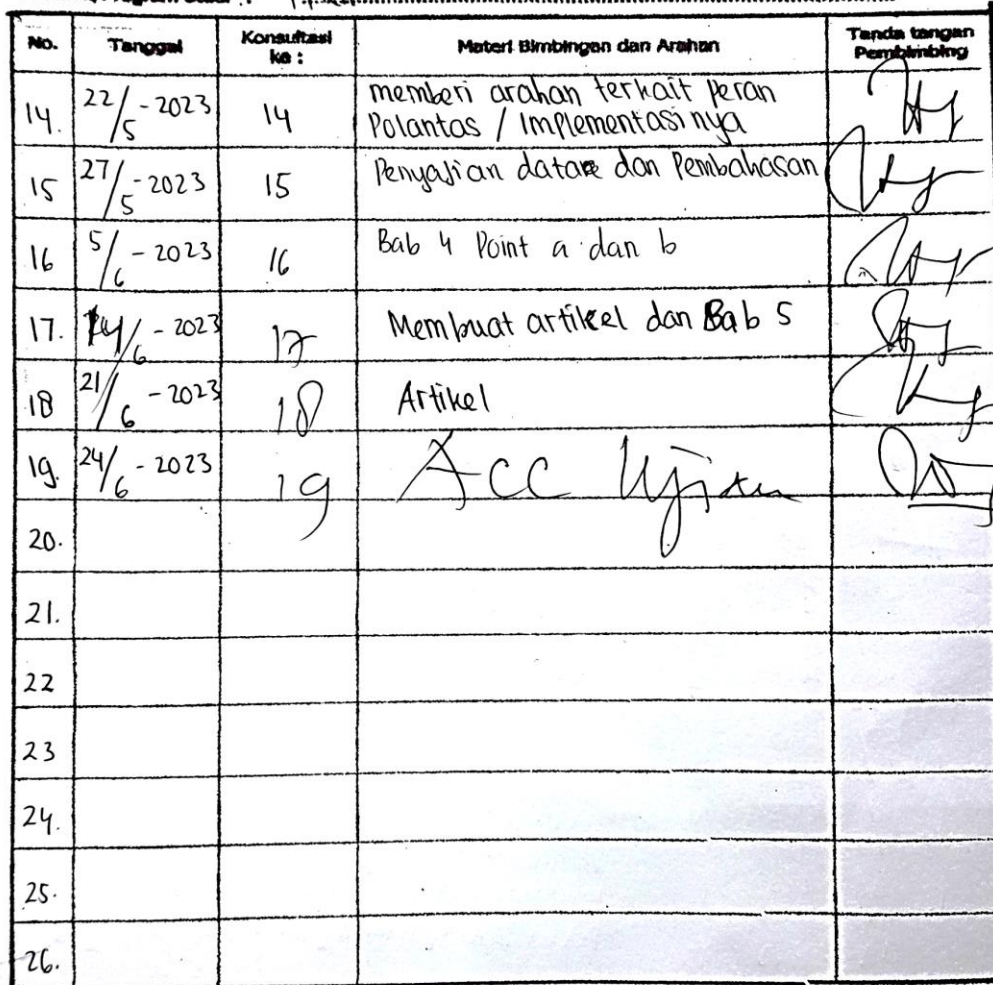 No. Tanggal Konsultasi ke : Materi Bimbingan dan Arahan Tanda tangan Pembimbing
14. 22/5 - 2023 14 memberi arahan terkait peran
Polantas / Implementasinya
15 27/5 - 2023 15 Penyajian data dan Pembahasan
16 5/6 - 2023 16 Bab 4 Point a dan b
17. 14/6 - 2023 17 Membuat artikel dan Bab 5
18 21/6 - 2023 18 Artikel
19. 24/6 - 2023 19 Acc Ujian
20.
21.
22
23
24.
25.
26.